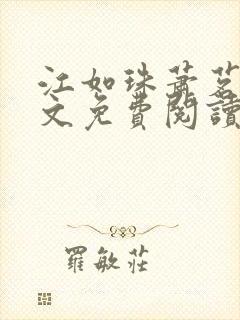 江如珠蕭茗
文免費閱讀
羅敏莊